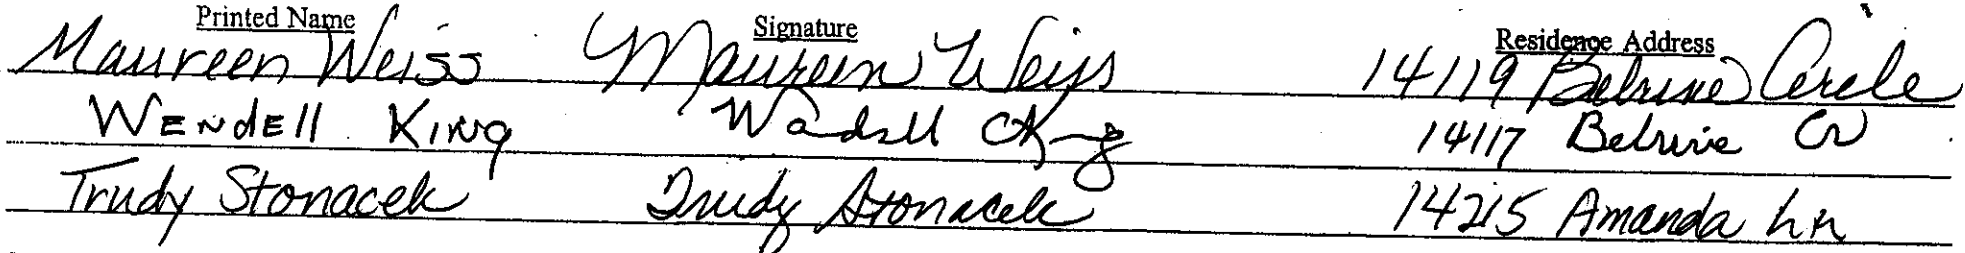 Printed Name Signature Residence Address
Maureen Weiss Maureen Weiss 14119 Belrive Circle
Wendell King Wendell King 14117 Belrive Cr
Trudy Stonacek Trudy Stonacek 14215 Amanda Ln